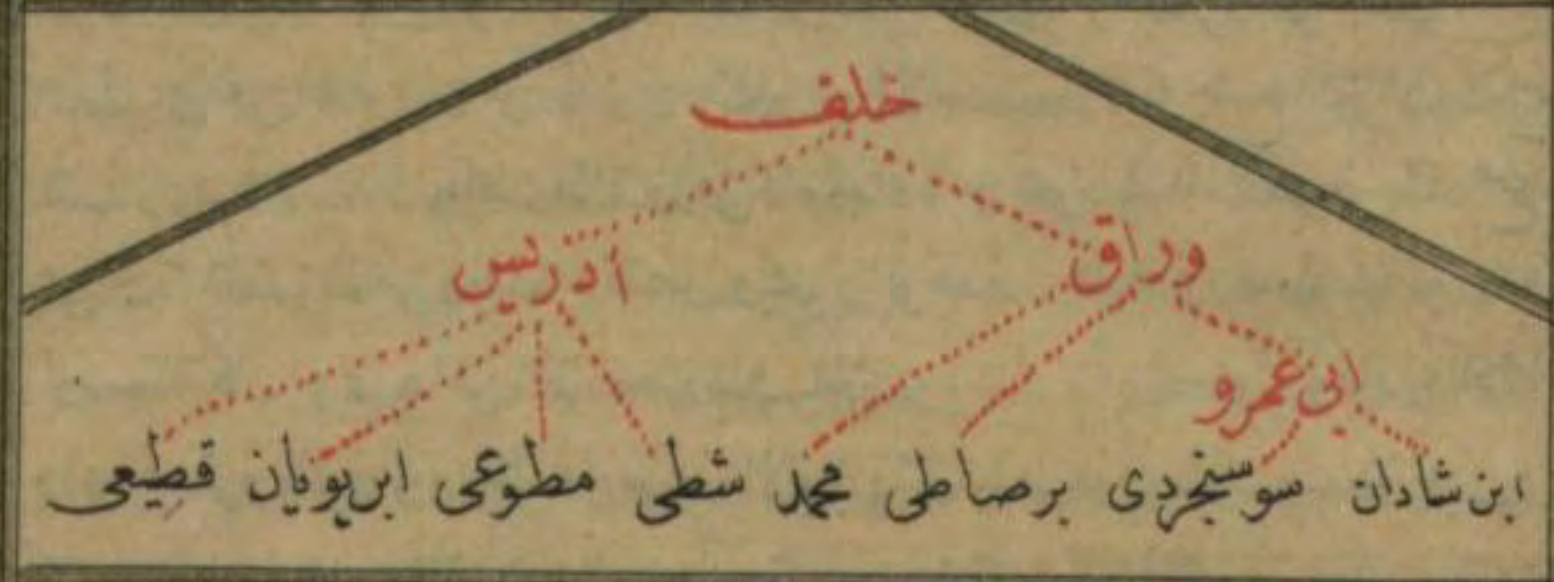 خلف
وراق أدريس
ابى عمرو
ابن شاذان سوسنجردى برصاطى محمد شطى مطوعى ابن بويان قطيعى